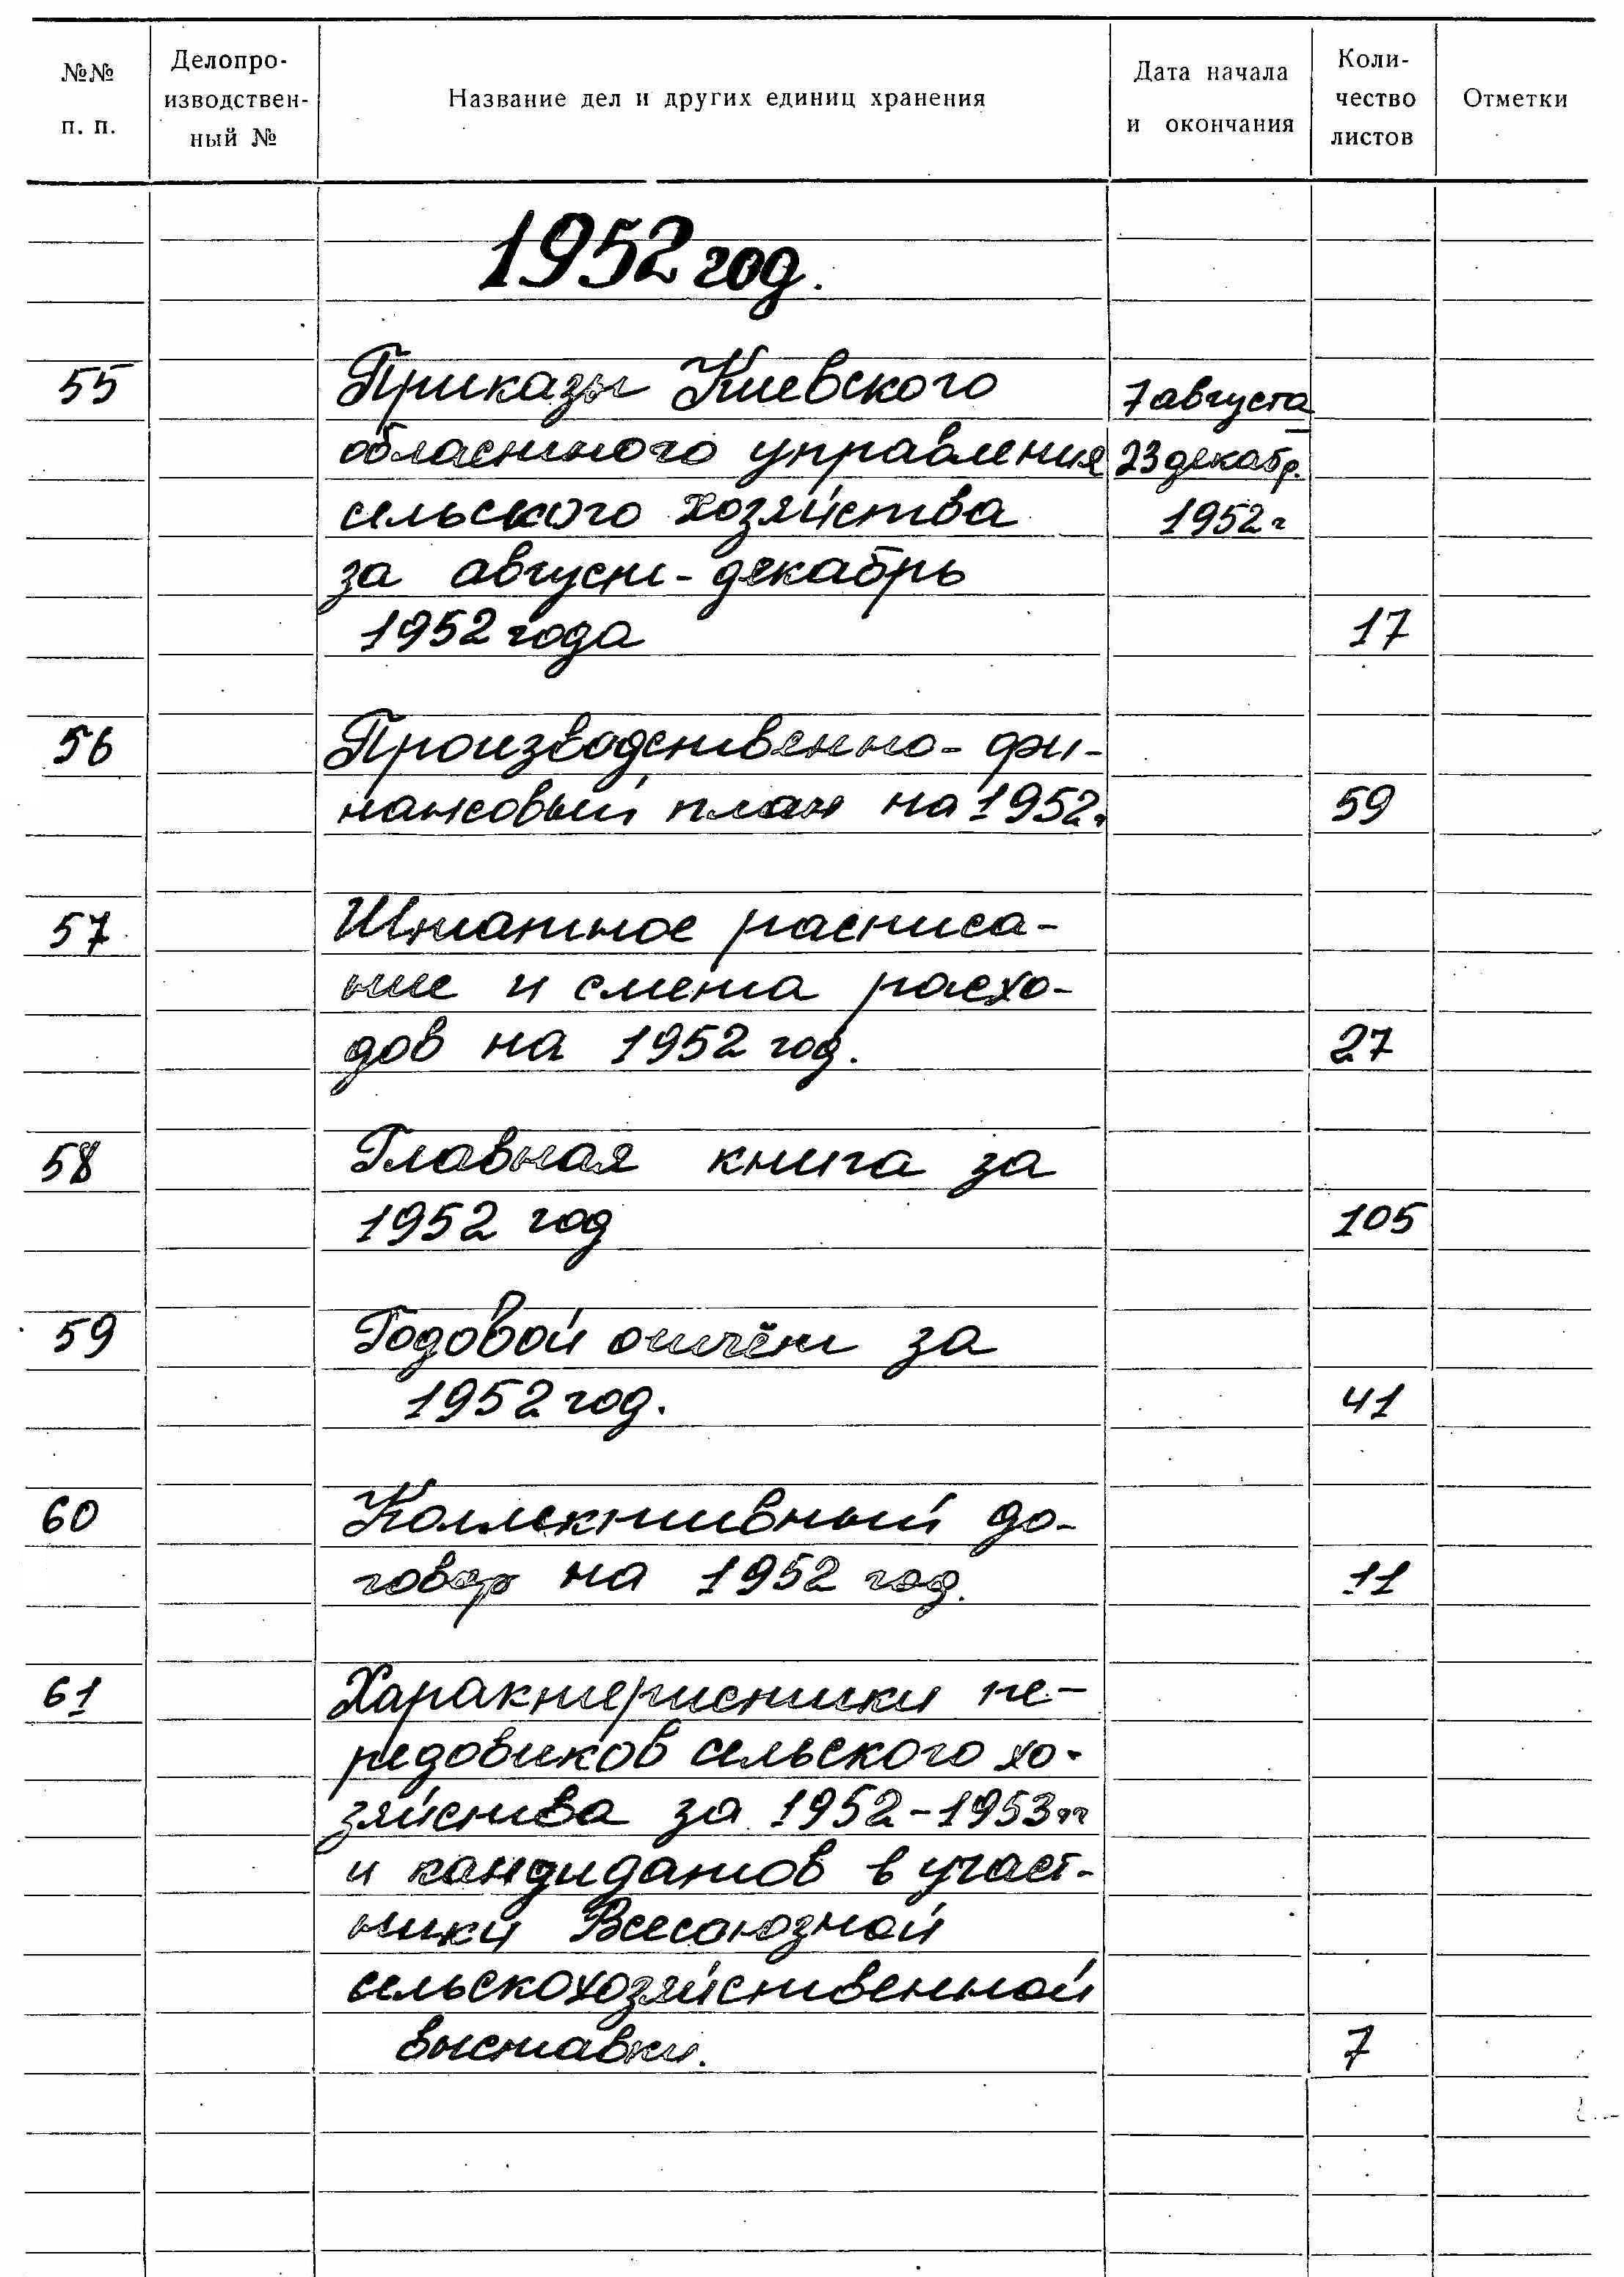 №№ п. п.
Делопро-
изводствен-
ный №
Название дел и других единиц хранения
Дата начала
и окончания
Коли-
чество
листов
Отметки
1952 год.
55 Приказы Киевского 7 августа
областного управления 23 декабр.
сельского хозяйства 1952 г
за август - декабрь
1952 года 17
56 Производственно - фи-
нансовый план на 1952г. 59
57 Штатное расписа-
ние и смета расхо-
дов на 1952 год. 27
58 Главная книга за
1952 год 105
59 Годовой отчёт за
1952 год. 41
60 Коллективный до-
говор на 1952 год. 11
61 Характеристики пе-
редовиков сельского хо-
зяйства за 1952-1953 гг
и кандидатов в участ-
ники Всесоюзной
сельскохозяйственной
выставки. 7